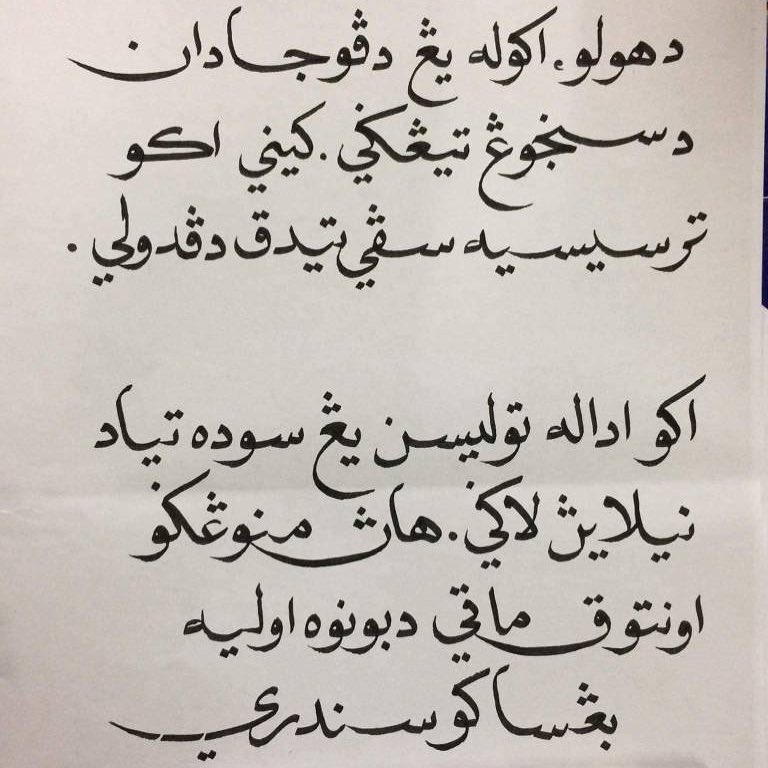 دهولو، اكوله يڠ دڤوجا دان
دسنجوڠ تيڠݢي. كيني اكو
ترسيسيه سڤي تيدق دڤدولي.
اكو اداله توليسن يڠ سوده تياد
نيلاين لاݢي. هاڽ منوڠݢو
اونتوق ماتي دبونوه اوليه
بڠساكو سنديري